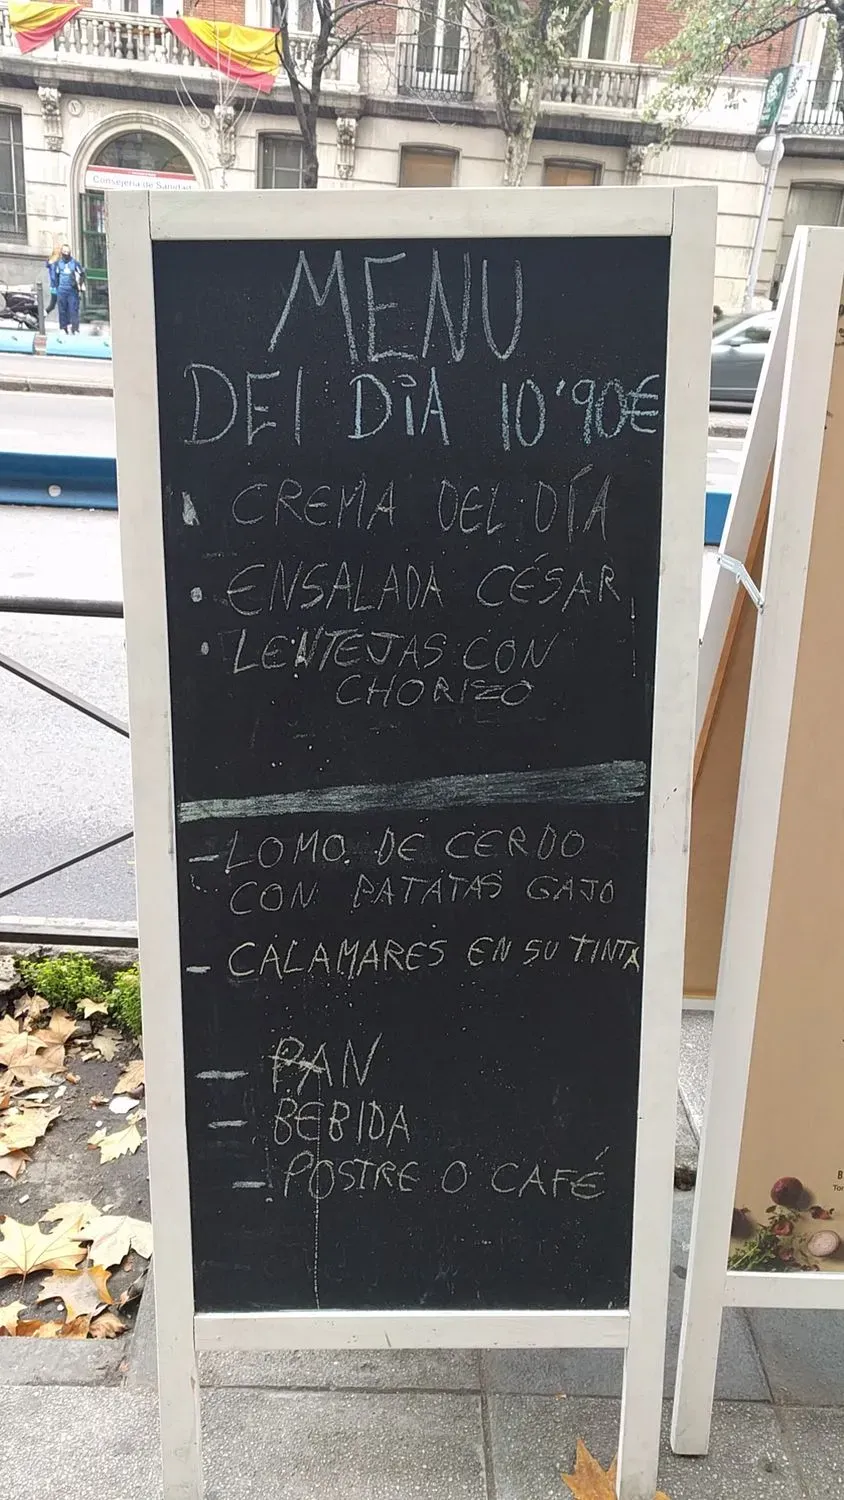 Consejería de Sanidad
MENU
DEl DiA 10'90€
• CREMA DEL DÍA
• ENSALADA CÉSAR
• LENTEJAS CON
CHORIZO
- LOMO DE CERDO
CON PATATAS GAJO
- CALAMARES EN SU TINTA
- PAN
- BEBIDA
- POSTRE O CAFÉ